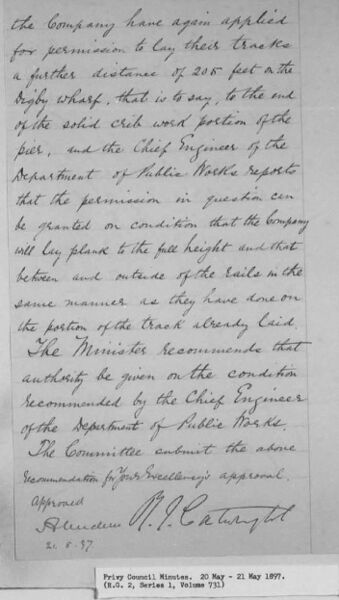 the Company have again applied
for permission to lay their tracks
a further distance of 205 feet on the
Digby wharf, that is to say, to the end
of the solid crib work portion of the
pier, and the Chief Engineer of the
Department of Public Works reports
that the permission in question can
be granted on condition that the Company
will lay plank to the full height and that
between and outside of the rails in the
same manner as they have done on
the portion of the track already laid.
The Minister recommends that
authority be given on the condition
recommended by the Chief Engineer
of the Department of Public Works.
The Committee submit the above
recommendation for Your Excellency's approval.
Approved
Aberdeen R. J. Cartwright
21.5.97
Privy Council Minutes. 20 May - 21 May 1897.
(R.G. 2, Series 1, Volume 731)